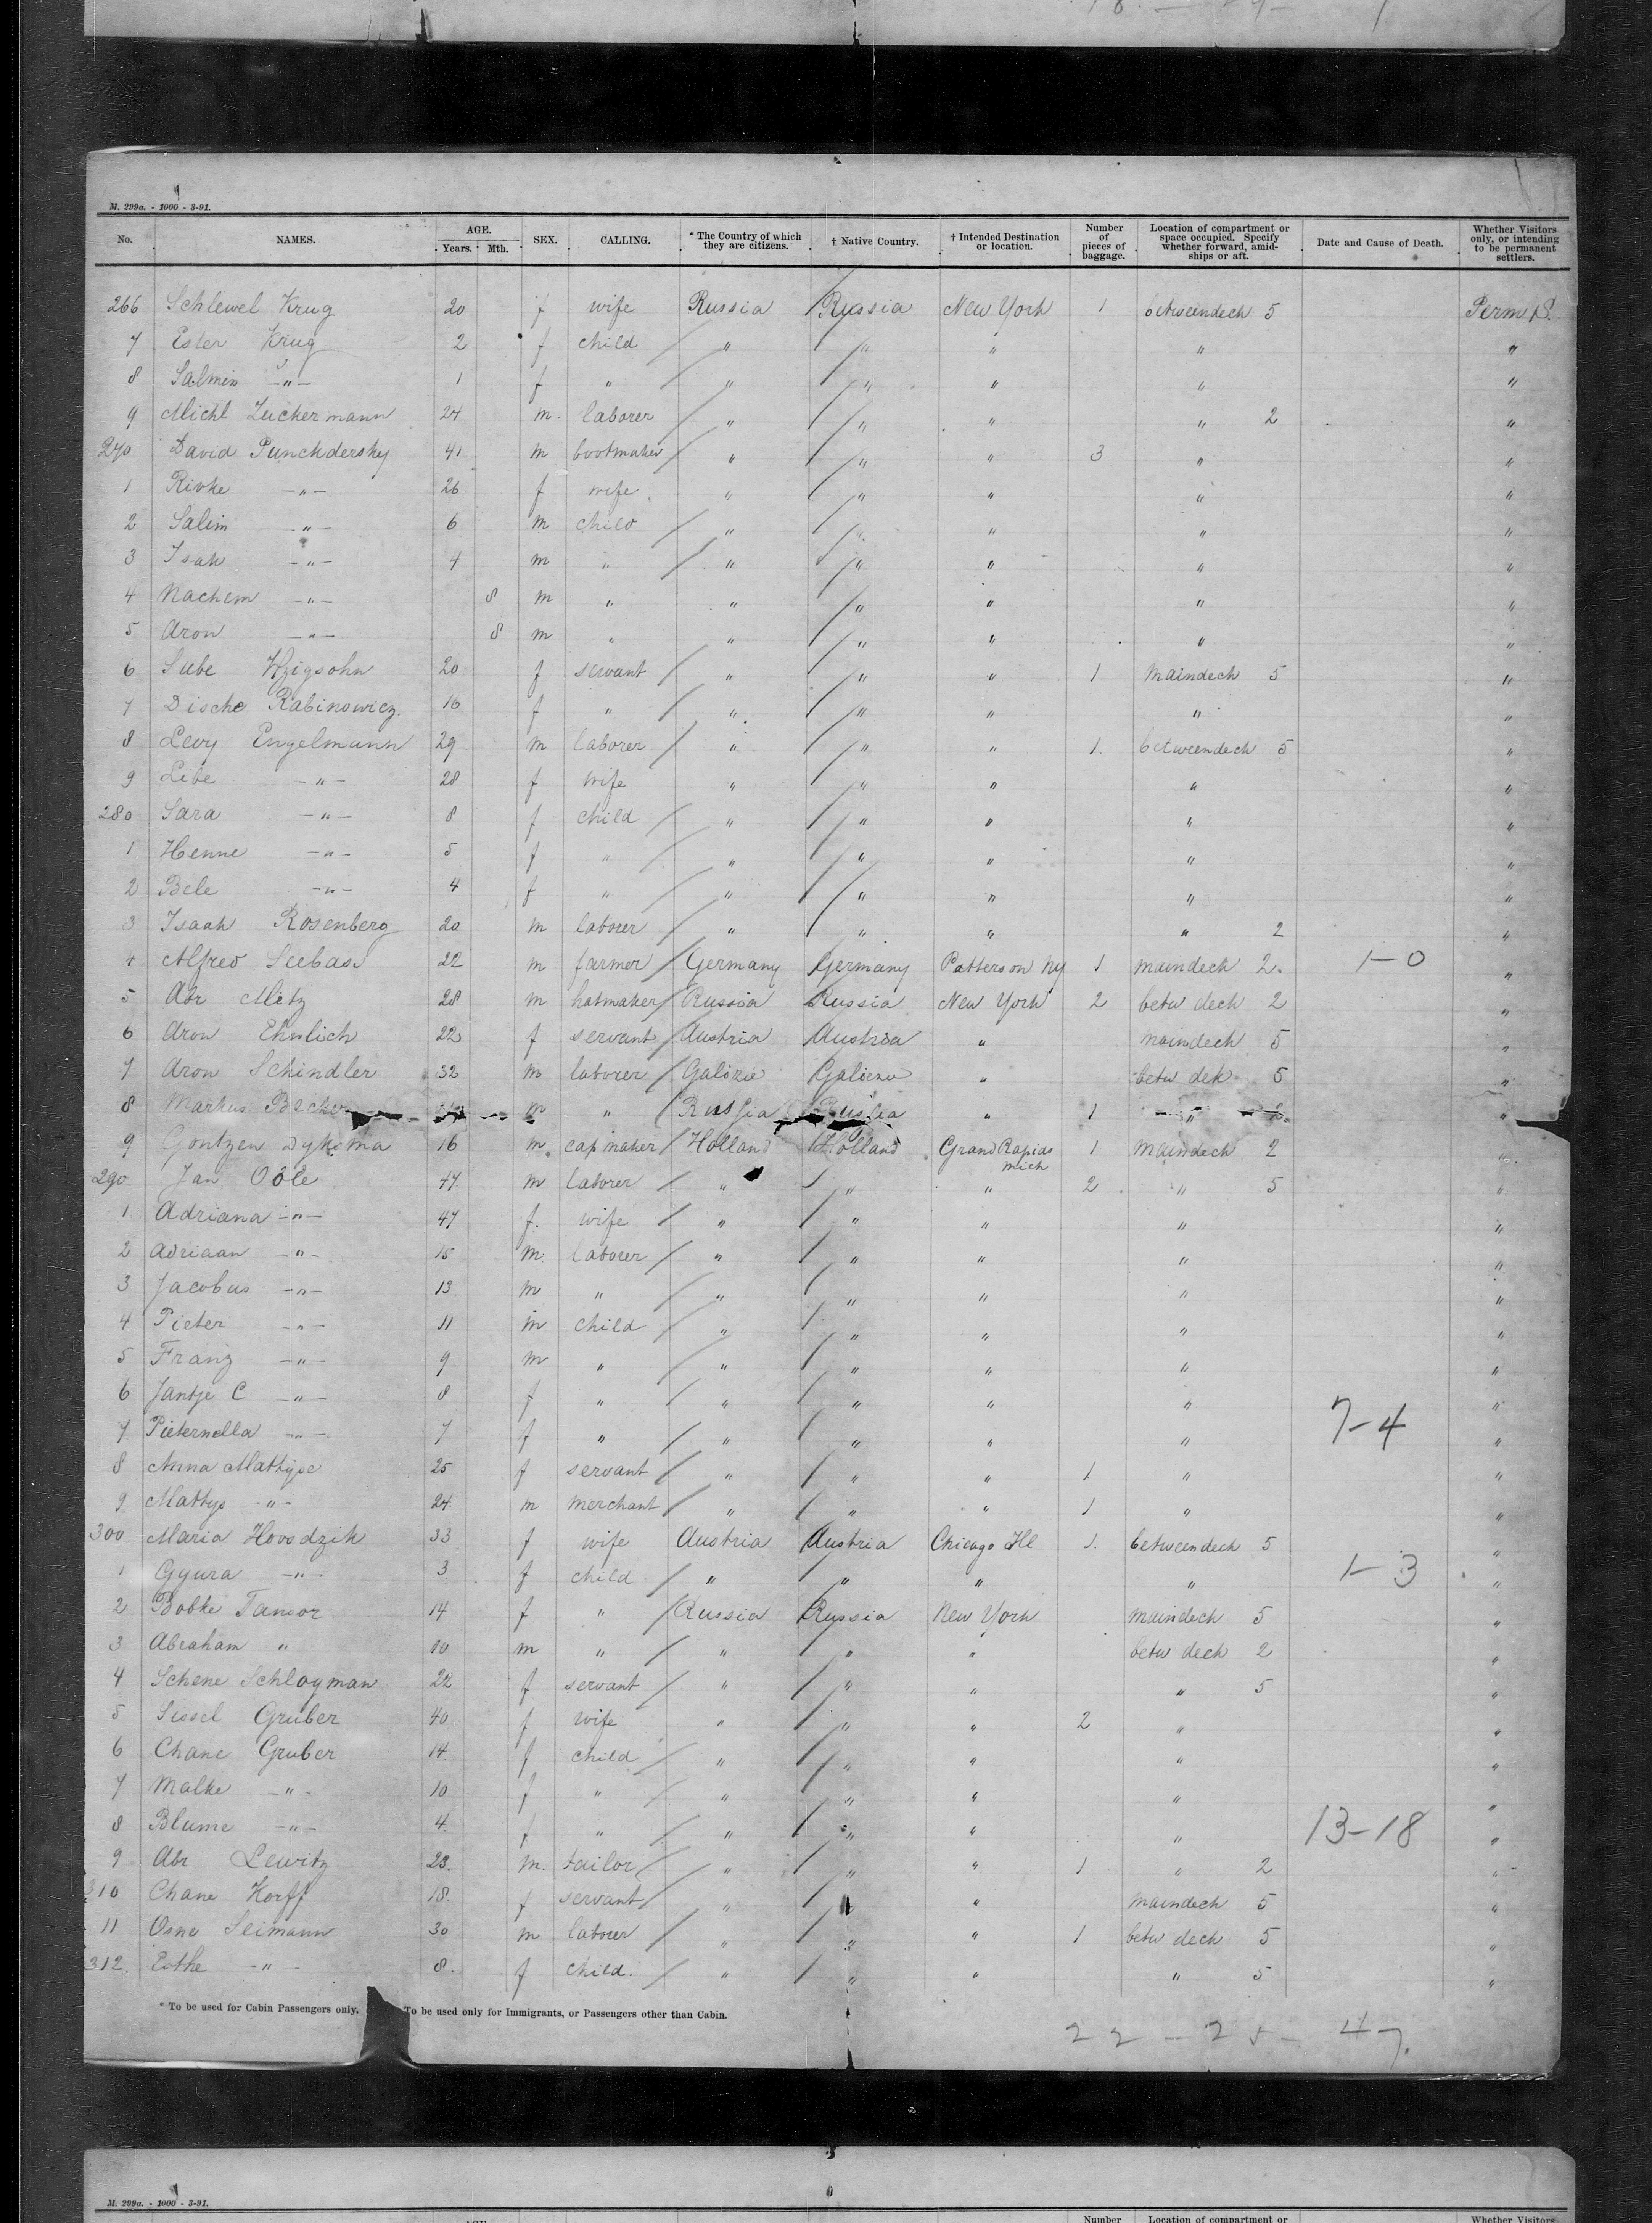 M. 299a. - 1000 - 3-91.
No. NAMES. AGE. Years. Mth. SEX. CALLING. * The Country of which they are citizens. † Native Country. † Intended Destination or location. Number of pieces of baggage. Location of compartment or space occupied. Specify whether forward, amidships or aft. Date and Cause of Death. Whether Visitors only, or intending to be permanent settlers.
266 Schlewel Krug 20 f wife Russia Russia New York 1 betweendeck 5 Perm S.
7 Ester Krug 2 f child " " " " "
8 Salmen -"- 1 f " " " " " "
9 Michl Zuckermann 24 m laborer " " " " 2 "
270 David Punckdersky 41 m bootmaker " " " 3 " "
1 Rivke -"- 26 f wife " " " " "
2 Salim -"- 6 m child " " " " "
3 Isak -"- 4 m " " " " " "
4 Nachem -"- 8 m " " " " " "
5 Aron -"- 8 m " " " " " "
6 Sube 20 f servant " " " 1 maindeck 5 "
7 Dische Rabinowicz 16 f " " " " " "
8 Levy Engelmann 29 m laborer " " " 1. betweendeck 5 "
9 Libe -"- 28 f wife " " " " "
280 Sara -"- 8 f child " " " " "
1 Henne -"- 5 f " " " " " "
2 Bele -"- 4 f " " " " " "
3 Isaak Rosenberg 20 m laborer " " " " 2 "
4 Alfred Seebass 22 m farmer Germany Germany Patterson NY 1 maindeck 2. 1-0 "
5 Abr Metz 28 m hatmaker Russia Russia New York 2 betw deck 2 "
6 Aron Ehrlich 22 f servant Austria Austria " maindeck 5 "
7 Aron Schindler 32 m laborer Galizie Galizie " betw dek 5 "
8 Markus Becker m " Russia Russia " 1 " 2 "
9 Gontzen Dykema 16 m. capmaker Holland Holland Grand Rapids mich 1 maindeck 2 "
290 Jan Oôle 47 m laborer " " " 2 " 5 "
1 Adriana -"- 47 f. wife " " " " "
2 Adriaan -"- 15 m. laborer " " " " "
3 Jacobus -"- 13 m " " " " " "
4 Pieter -"- 11 m child " " " " "
5 Franz -"- 9 m " " " " " "
6 Jantje C -"- 8 f " " " " " "
7 Pieternella -"- 7 f " " " " " 7-4 "
8 Anna Mathyse 25 f servant " " " 1 " "
9 Mattys -"- 24 m merchant " " " 1 " "
300 Maria Hovodzik 33 f wife Austria Austria Chicago Ill 1. betweendeck 5 "
1 Gyura -"- 3 f child " " " " 1-3 "
2 Bobke Tamor 14 f " Russia Russia New York maindeck 5 "
3 Abraham " 10 m " " " " betw deck 2 "
4 Schene Schlogman 22 f servant " " " " 5 "
5 Sissel Gruber 40 f wife " " " 2 " "
6 Chane Gruber 14 f child " " " " "
7 Malke -"- 10 f " " " " " "
8 Blume -"- 4 f " " " " " 13-18 "
9 Abr Lewitz 23. m. tailor " " " 1 " 2 "
310 Chane Korff 18 f servant " " " maindeck 5 "
11 Osno Seimann 30 m laborer " " " 1 betw deck 5 "
312. Esthe -"- 8. f child. " " " " 5 "
* To be used for Cabin Passengers only. To be used only for Immigrants, or Passengers other than Cabin.
22 - 25 - 47.
M. 299a. - 1000 - 3-91.
AGE. Number Location of compartment or Whether Visitors